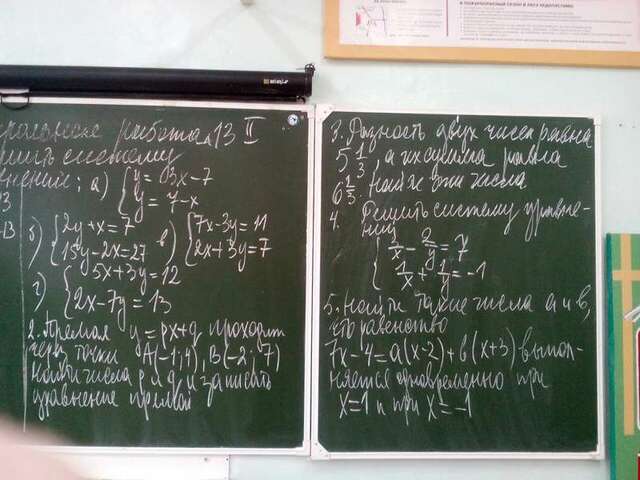 рольная работа 13 II
ешить систему
внений: а) { y = 3x-7
y = 7-x
б) { 2y+x=7
15y-2x=27 в) { 7x-3y=11
2x+3y=7
г) { 5x+3y=12
2x-7y=13
2. Прямая y=px+q проходит
через точки A(-1;4), B(-2;7)
найти числа p и q и записать
уравнение прямой
3. Разность двух чисел равна
5 1/3, а их сумма равна
6 1/3. Найти эти числа
4. Решить систему уравне-
ний
{ 3/x - 2/y = 7
1/x + 1/y = -1
5. Найти такие числа a и b,
что равенство
7x-4=a(x-2)+b(x+3) выпол-
няется одновременно при
x=1 и при x=-1